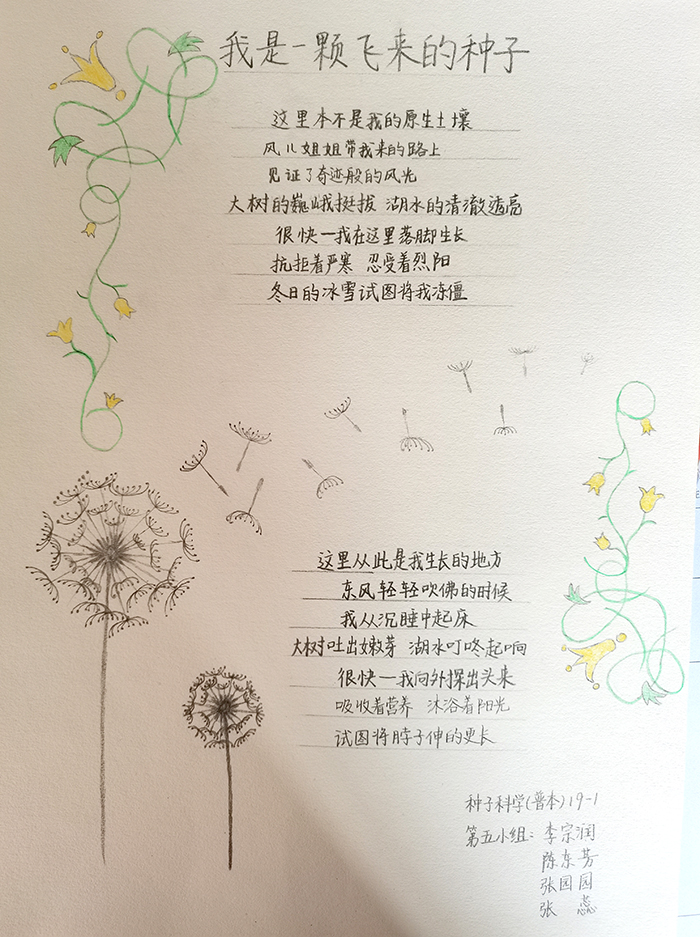 我是一颗飞来的种子
这里本不是我的原生土壤
风儿姐姐带我来的路上
见证了奇迹般的风光
大树的巍峨挺拔 湖水的清澈透亮
很快一我在这里落脚生长
抗拒着严寒 忍受着烈阳
冬日的冰雪试图将我冻僵
这里从此是我生长的地方
东风轻轻吹佛的时候
我从沉睡中起床
大树吐出嫩芽 湖水叮咚起响
很快一我向外探出头来
吸收着营养 沐浴着阳光
试图将脖子伸的更长
种子科学(普本)19-1
第五小组：李宗润
陈东芳
张园园
张 蕊